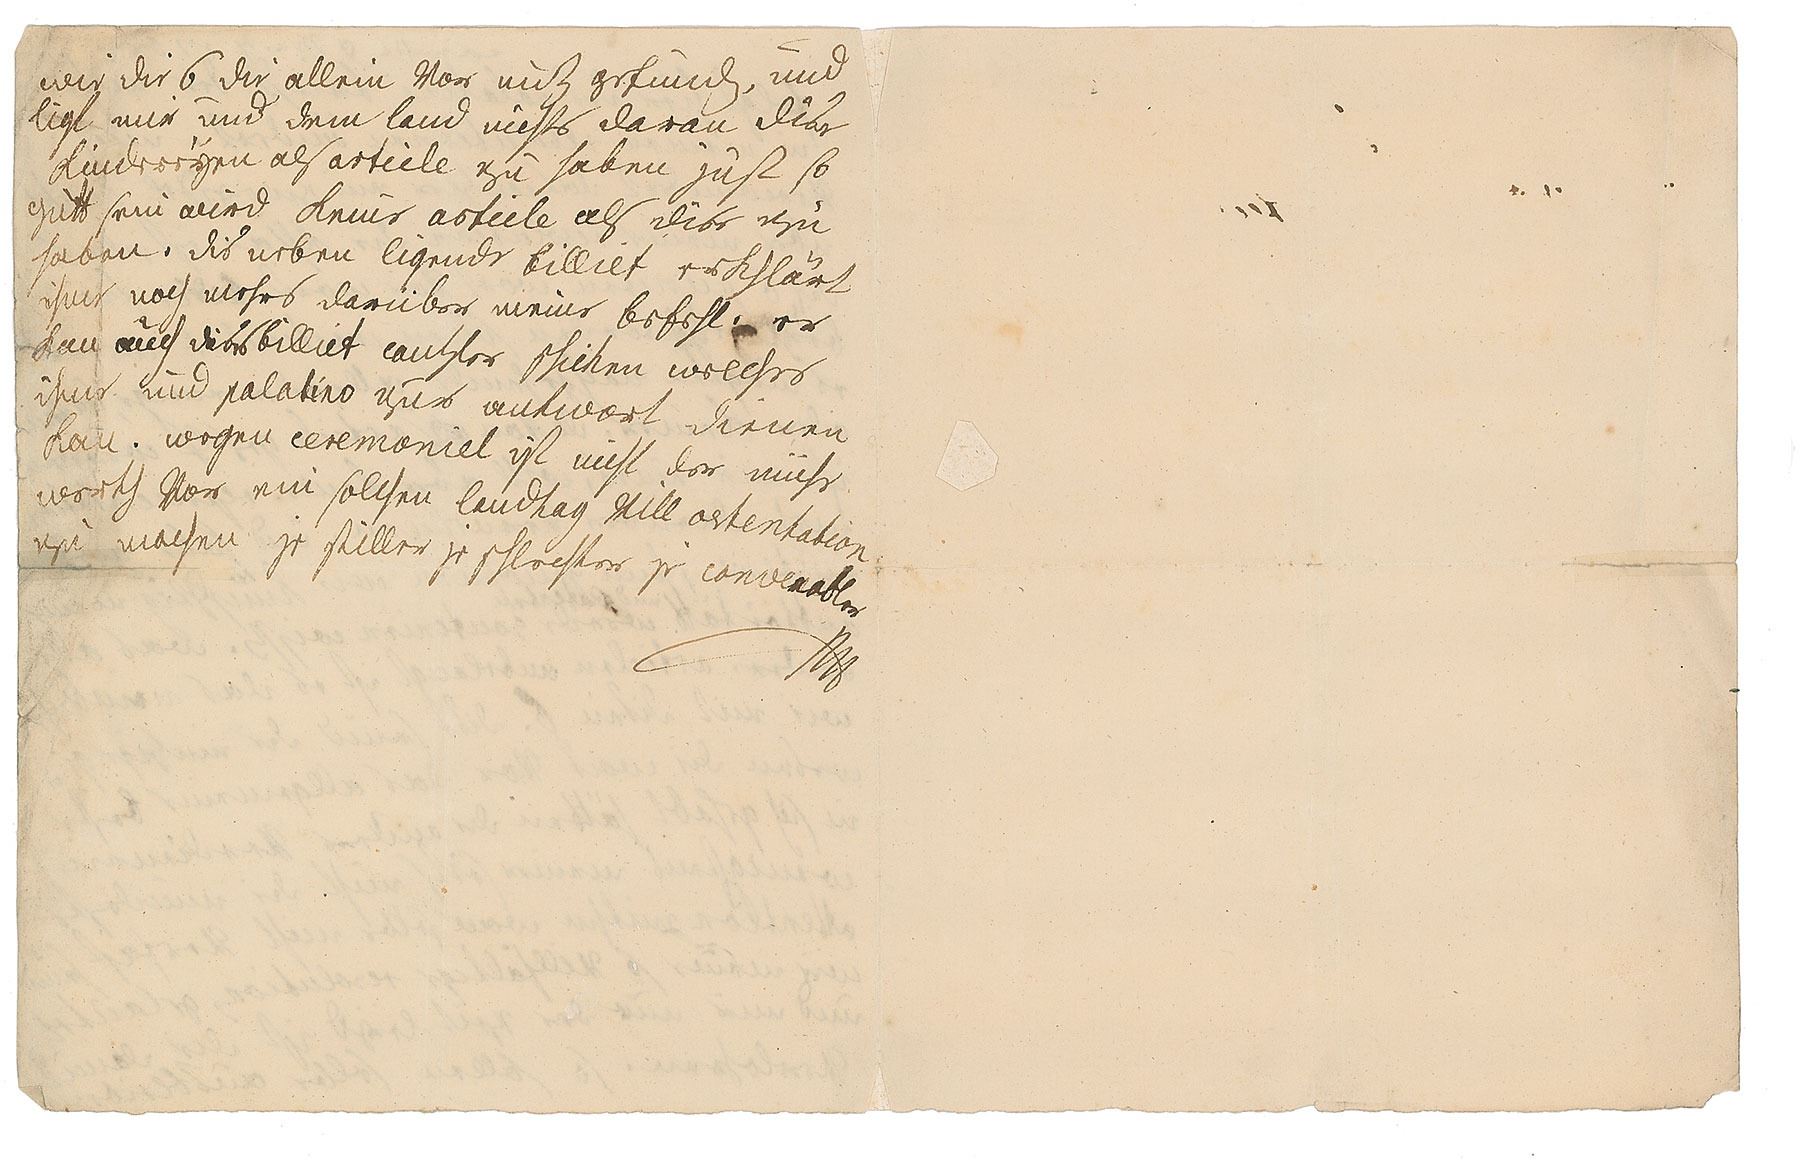 wie die 6 die allein vor nutz gefund, und
ligt mir und dem land nichts daran dise
kindereyen als article zu haben just so
gutt sein wird keine article als dise zu
haben. dis neben ligende billiet erkhlärt
ihme noch mehrs darüber meine befehl. er
kan auch dises billiet cantzler schicken welches
ihme und palatino zur antwort dienen
kan. wegen ceremoniel ist nicht der mühe
werth vor ein solchen landtag vill ostentation
zu machen je stiller je schlechter je convenabler